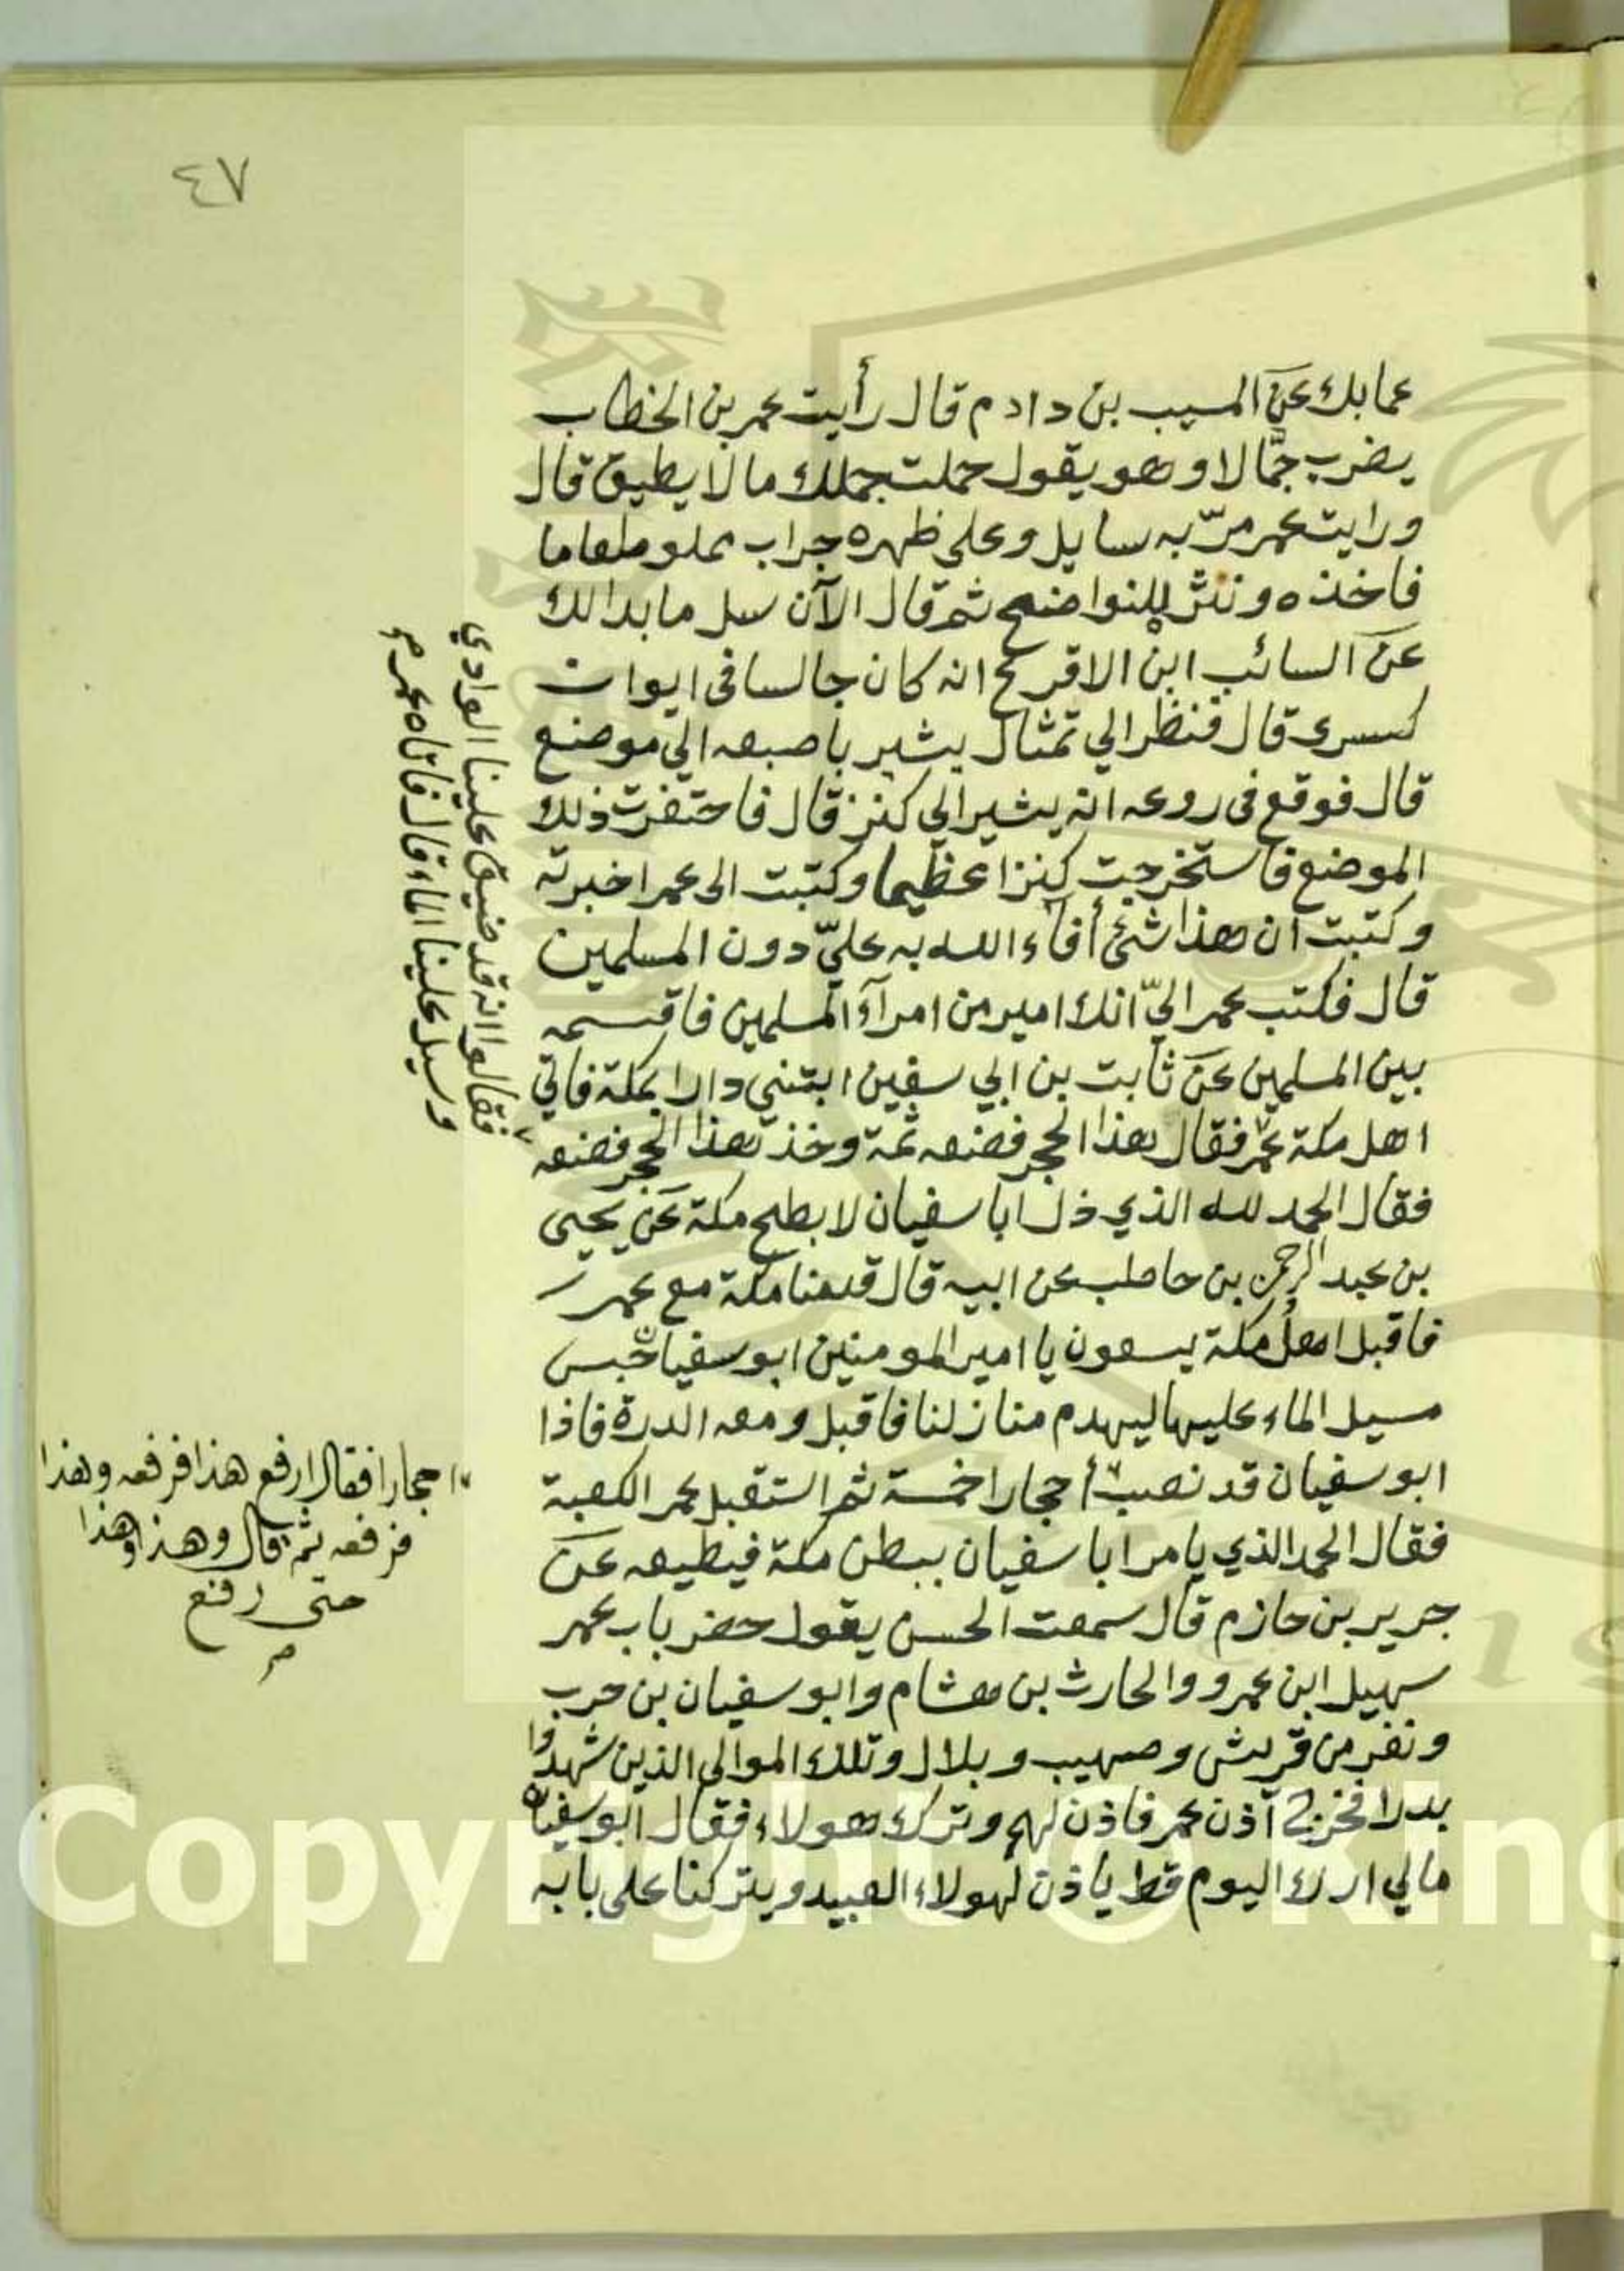 ٤٧
عما بك عن المسيب بن دادم قال رأيت عمر بن الخطاب
يضرب جمّالا وهو يقول حملت جملك ما لا يطيق قال
ورايت عمر مرّ به سايل وعلى ظهره جراب مملو طعاما
فاخذه ونثر للنواضح ثم قال الآن سل ما بدا لك
عن السائب ابن الاقرع انه كان جالسا في ايوان
كسرى قال فنظر الي تمثال يشير باصبعه الي موضع
قال فوقع في روعه انه يشير الي كنز قال فاحتفرت ذلك
الموضع فاستخرجت كنزا عظيما وكتبت الى عمر اخبرته
وكتبت ان هذا شئ أفاء الله به عليّ دون المسلمين
قال فكتب عمر اليّ انك امير من امرآء المسلمين فاقسمه
بين المسلمين عن ثابت بن ابي سفين ابتني دارا بمكة فاتي
اهل مكة عمر فقال هذا الحجر فضعه ثمة وخذ هذا الحجر فضعه
فقال الحمد لله الذي ذل ابا سفيان لابطح مكة عن يحيى
بن عبد الرحمن بن حاطب عن ابيه قال قدمنا مكة مع عمر
فاقبل اهل مكة يسعون يا امير المومنين ابو سفيان حبس
مسيل الماء عليها ليهدم منازلنا فاقبل ومعه الدرة فاذا
ابو سفيان قد نصب أحجارا خمسة ثم استقبل عمر الكعبة
فقال الحمد الذي يامر ابا سفيان ببطن مكة فيطيعه عن
جرير بن حازم قال سمعت الحسن يقول حضر باب عمر
سهيل ابن عمرو والحارث بن هشام وابو سفيان بن حرب
ونفر من قريش وصهيب وبلال وتلك الموالي الذين شهدوا
بدرا فخرج آذن عمر فاذن لهم وترك هولاء فقال ابو سفيان
مالي ار ك اليوم قط ياذن لهولاء العبيد ويتركنا على بابه
فقالوا انه قد ضيق علينا الوادي
وسيل علينا الماء قال فاتاه عمر م
احجارا فقال ارفع هذا فرفعه وهذا
فرفعه ثم قال وهذا وهذا
حتى رفع
م
Copyright © King